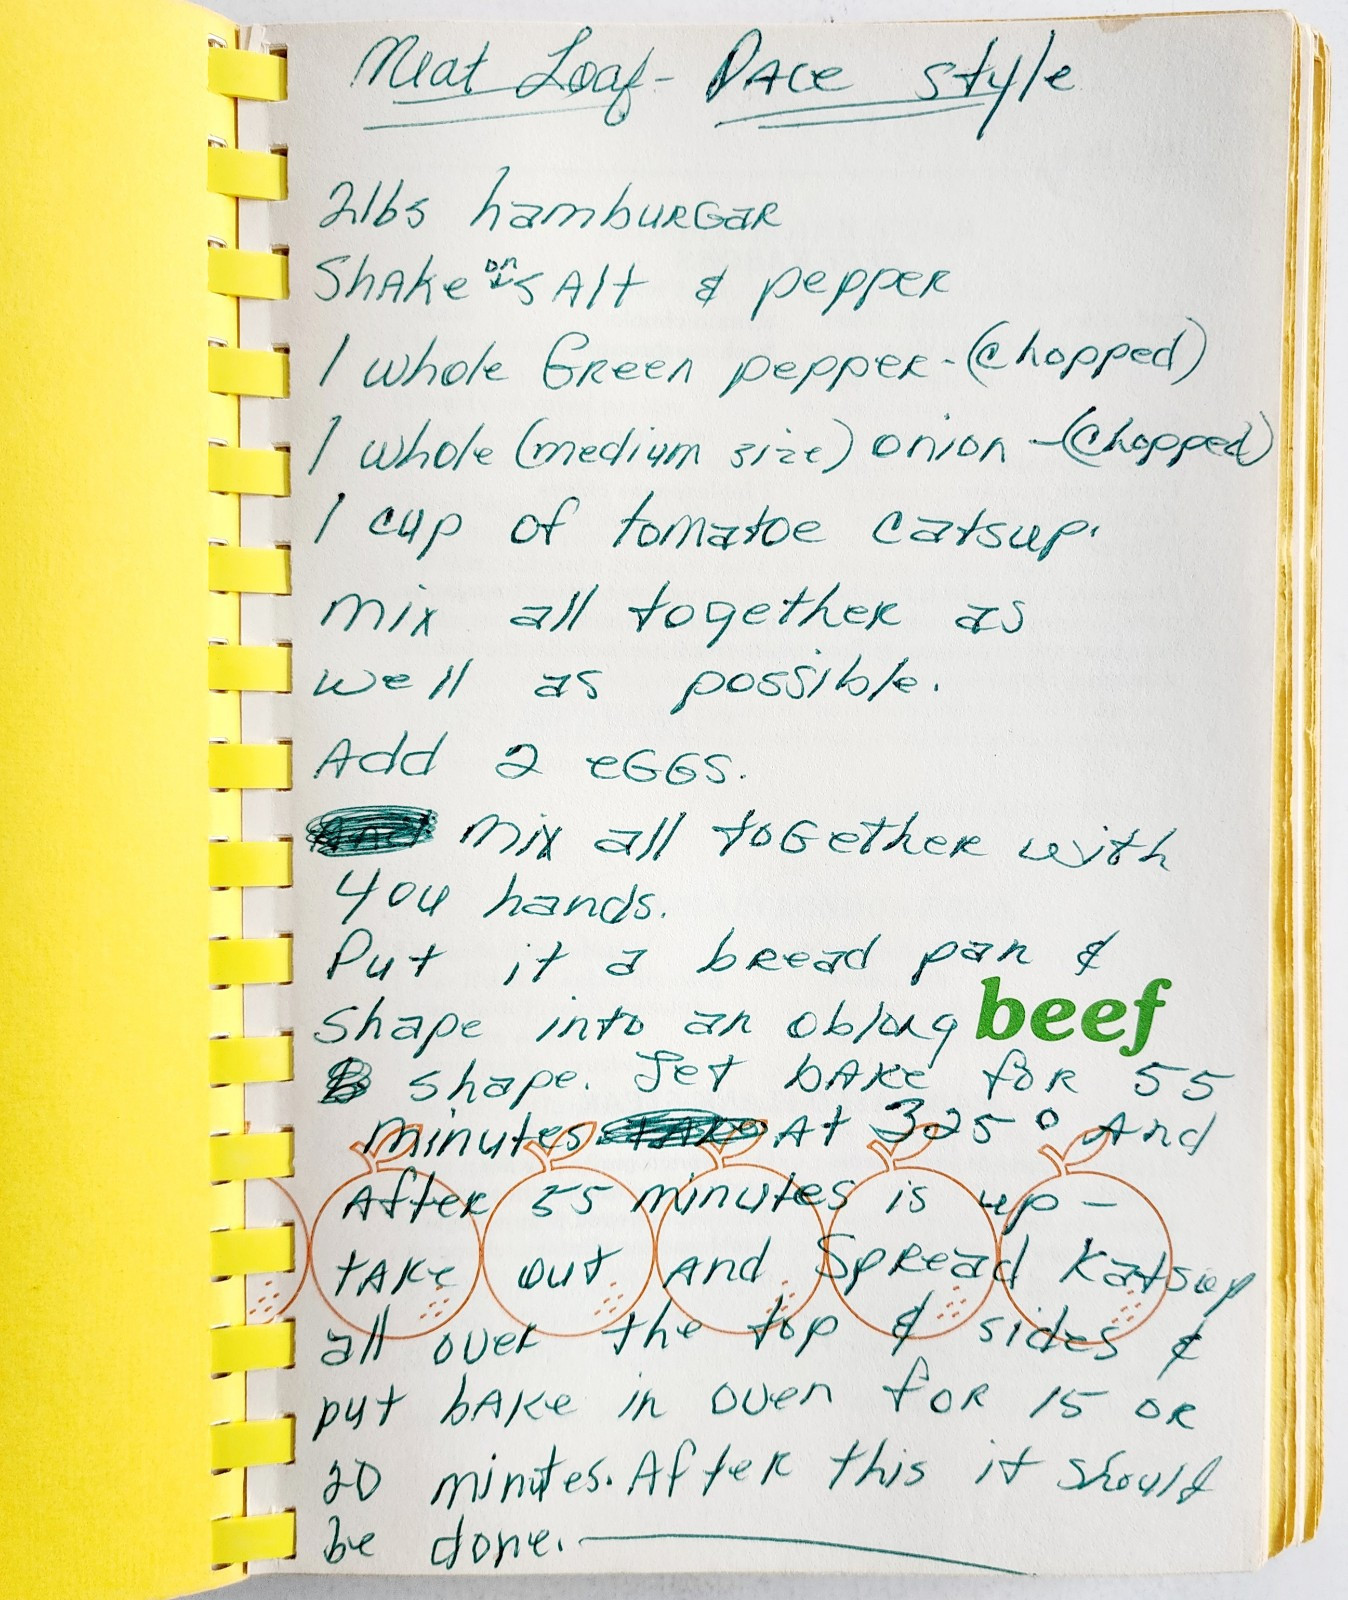 Meat Loaf - Pace Style
2lbs hamburgar
Shake on salt & pepper
1 whole Green pepper - (chopped)
1 whole (medium size) onion - (chopped)
1 cup of tomatoe catsup.
mix all together as
well as possible.
Add 2 eggs.
mix all together with
you hands.
Put it a bread pan &
shape into an oblong beef
shape. Let bake for 55
minutes At 325° And
After 55 minutes is up -
take out and Spread Katsup
all over the top & sides &
put bake in oven for 15 or
20 minutes. After this it should
be done.